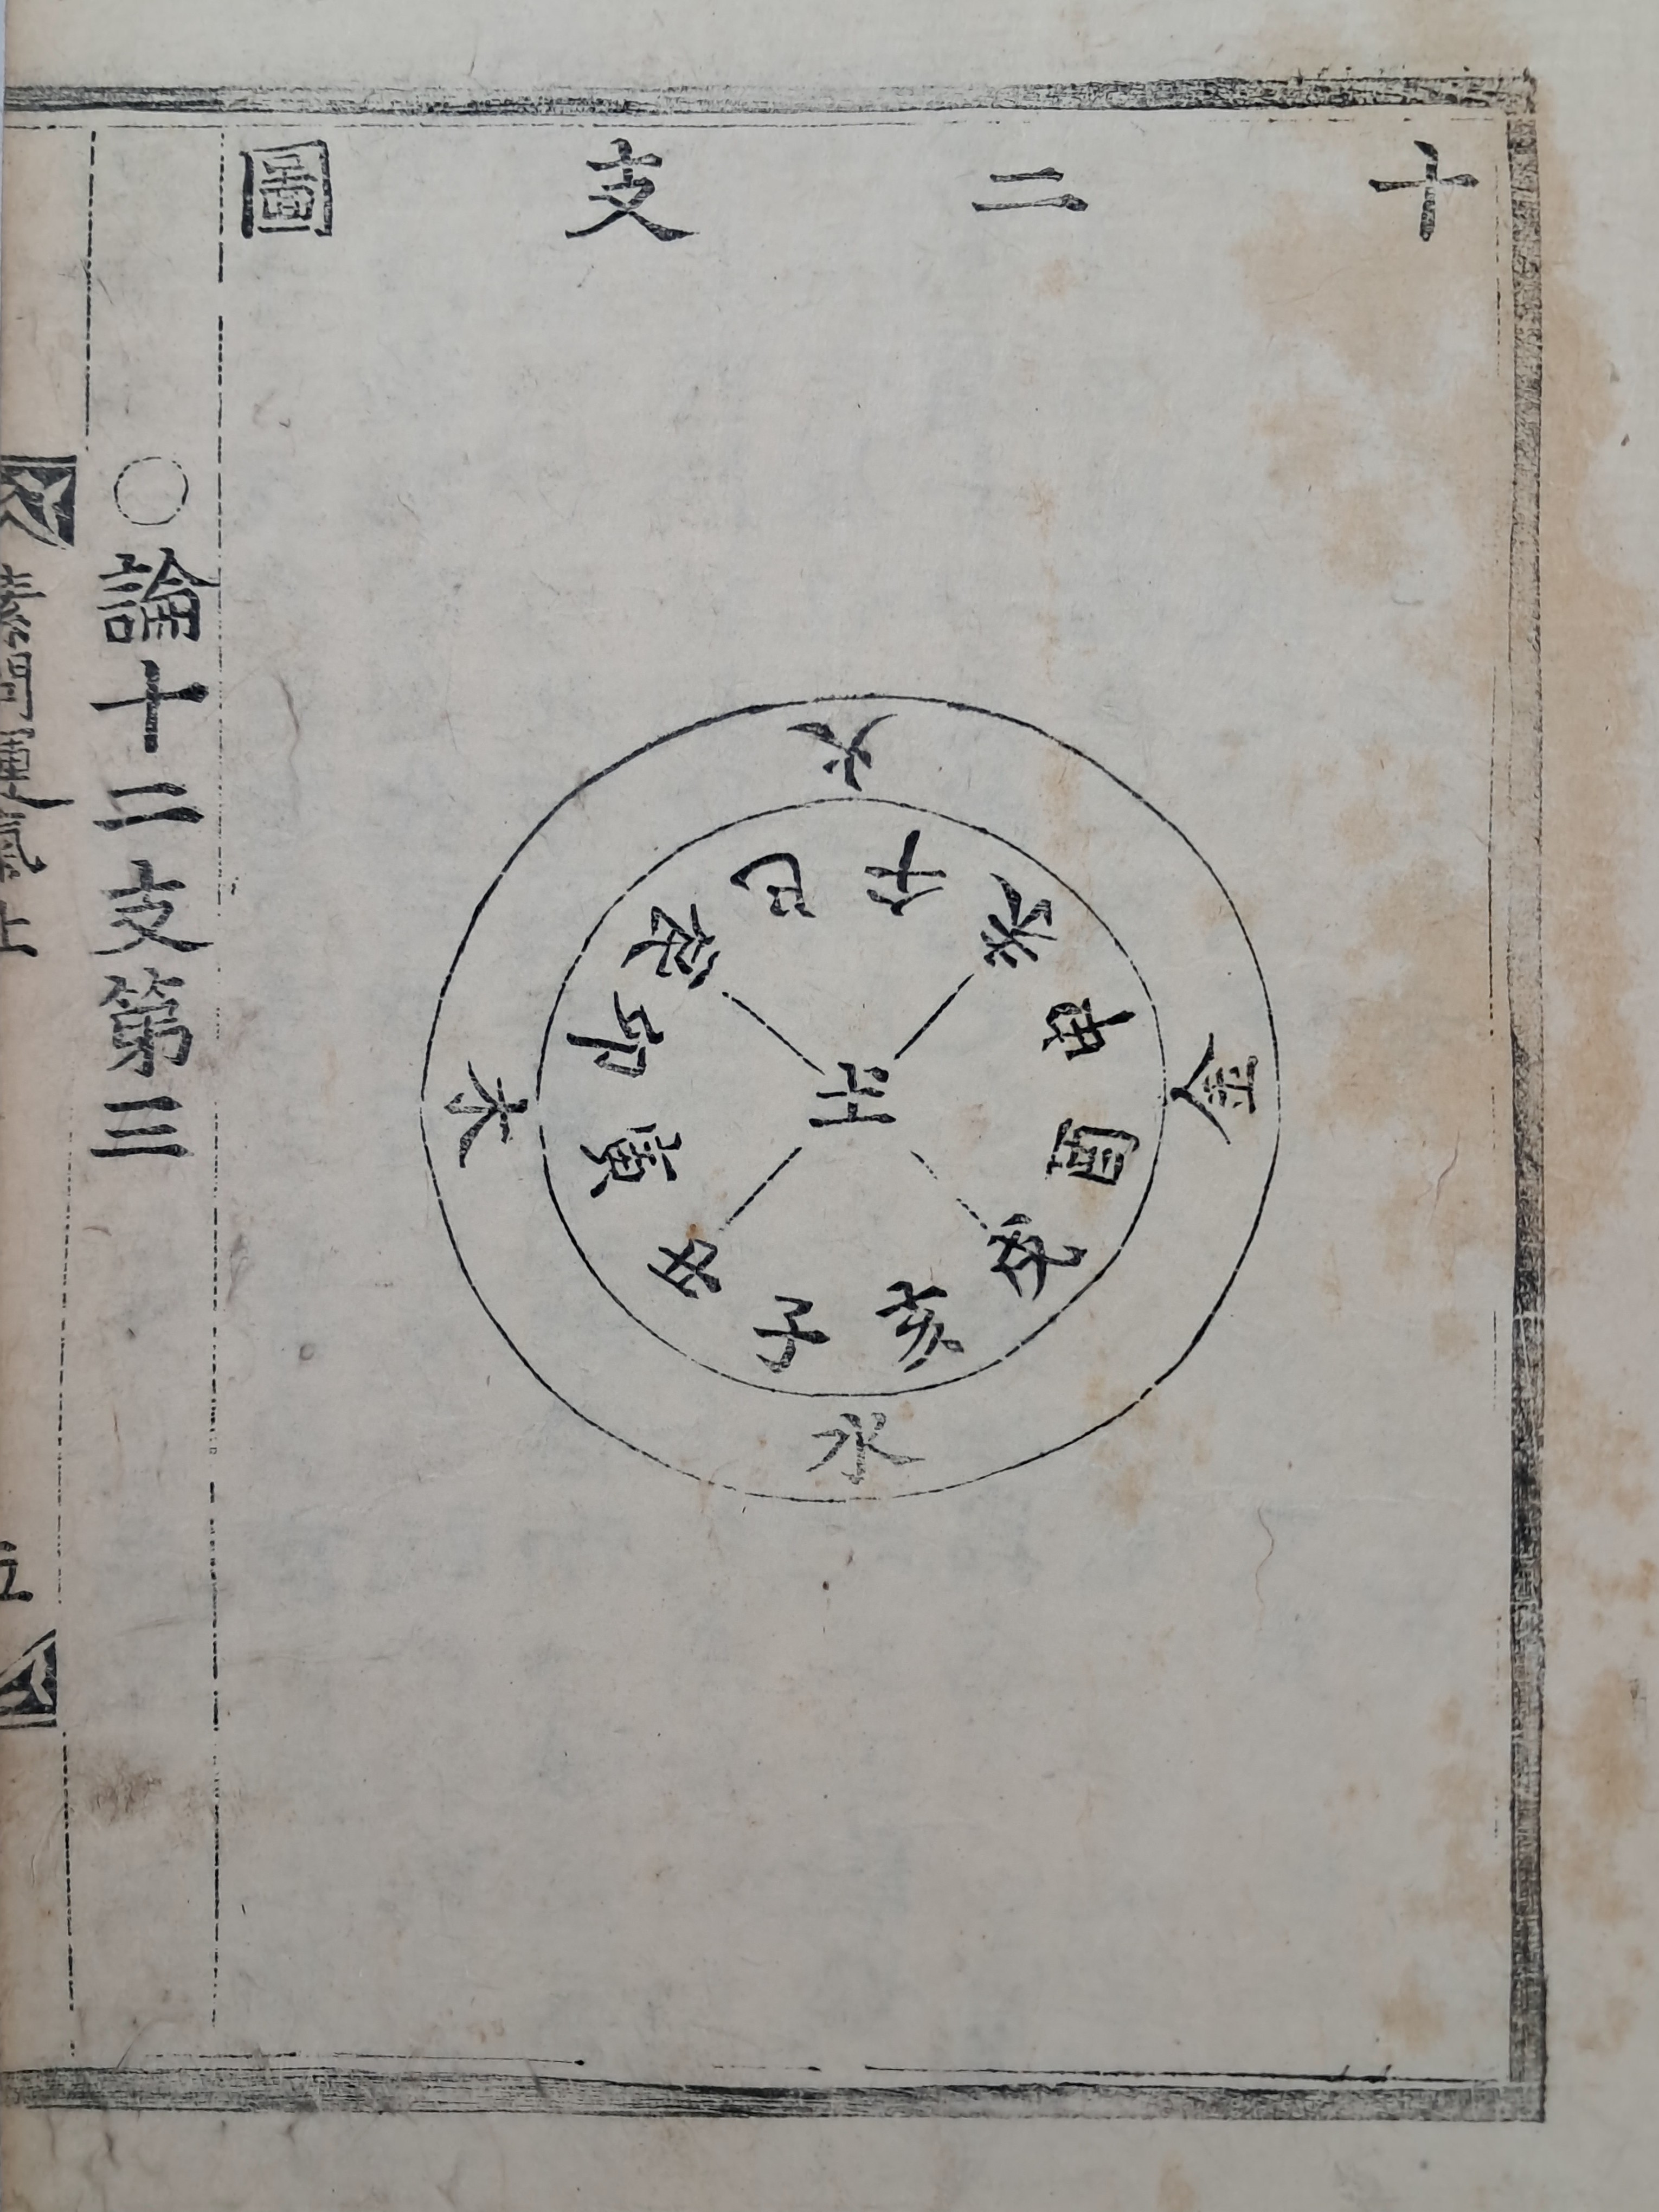 十二支圖
火
金
水
木
巳午未申酉戌亥子丑寅卯辰
土
○論十二支第三
素問運氣上
五